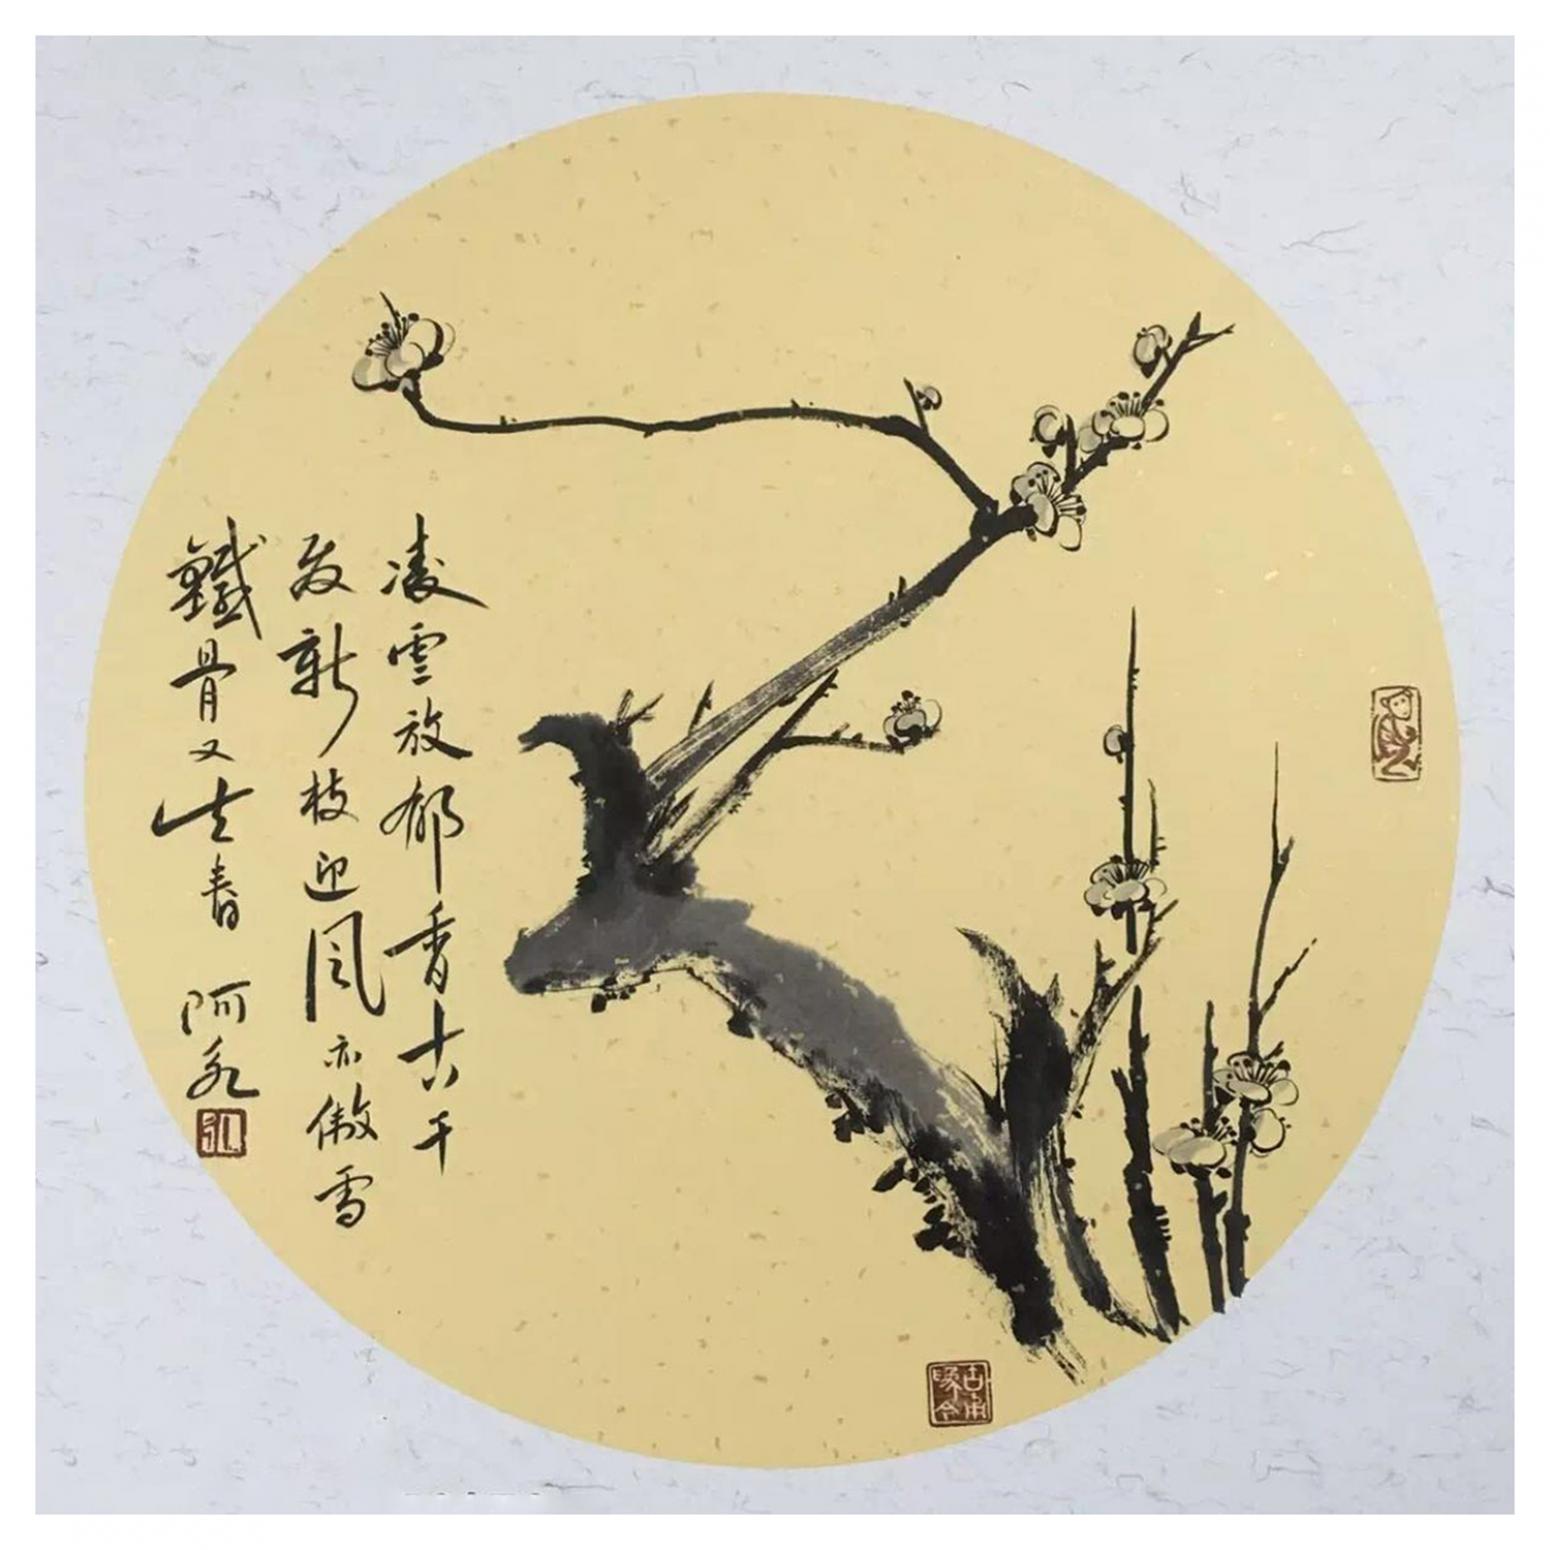 凌雲放郁香古干
发新枝迎風亦傲雪
鐵骨又生春 阿